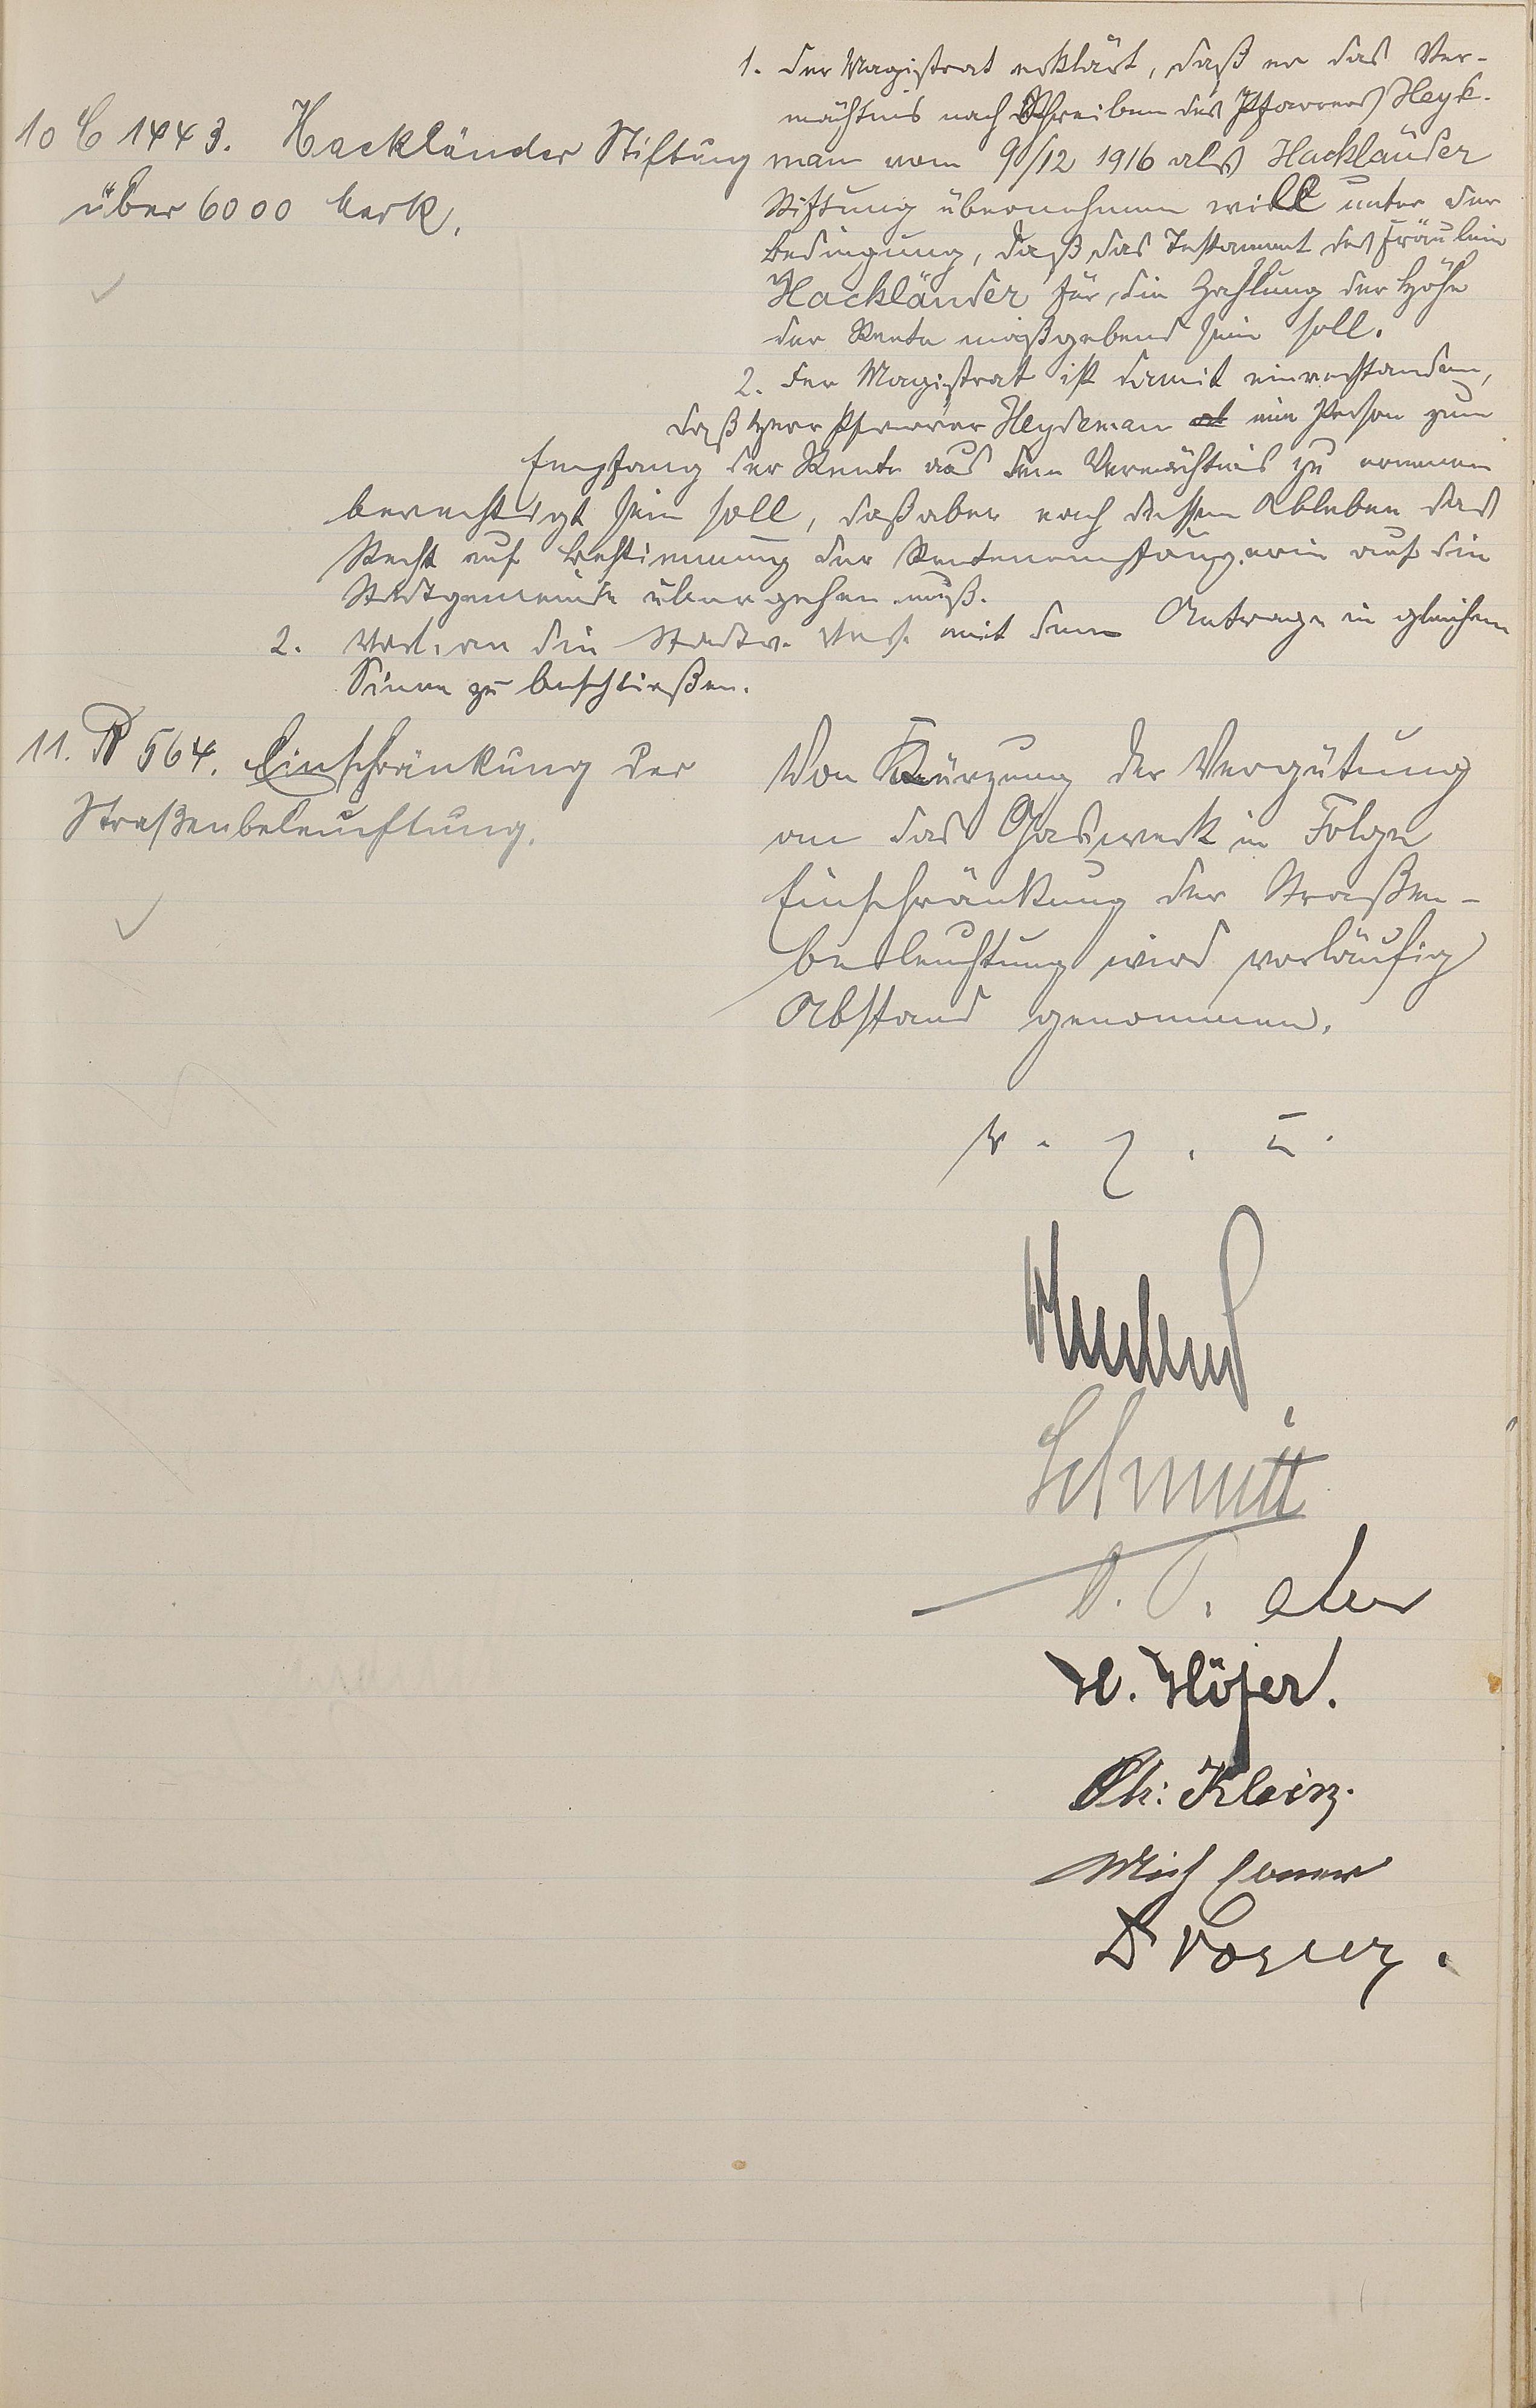 10 C 1443. Hackländer Stiftung
über 6000 Mark.
1. Der Magistrat erklärt, daß er das Ver-
mächtnis nach Schreiben des Pfarrers Heyde-
man vom 9/12 1916 als Hackländer
Stiftung übernehmen will unter der
Bedingung, daß das Testament des Fräulein
Hackländer für die Zahlung der Höhe
der Rente maßgebend sein soll.
2. Der Magistrat ist damit einverstanden,
daß Herr Pfarrer Heydeman eine Person zum
Empfang der Rente aus dem Vermächtnis zu ernennen
berechtigt sein soll, daß aber nach dessen Ableben das
Recht auf Bestimmung der Rentenempfängerin auf die
Stadtgemeinde übergehen muß.
2. Vorl. an die Stadtv. Vers. mit dem Antrage in gleichem
Sinne zu beschließen.
11. R 564. Einschränkung der
Straßenbeleuchtung.
Von Kürzung der Vergütung
an das Gaswerk in Folge
Einschränkung der Straßen-
beleuchtung wird vorläufig
Abstand genommen.
v. g. u.
Schmitt
H. Höfer.
Ph: Kleinz.